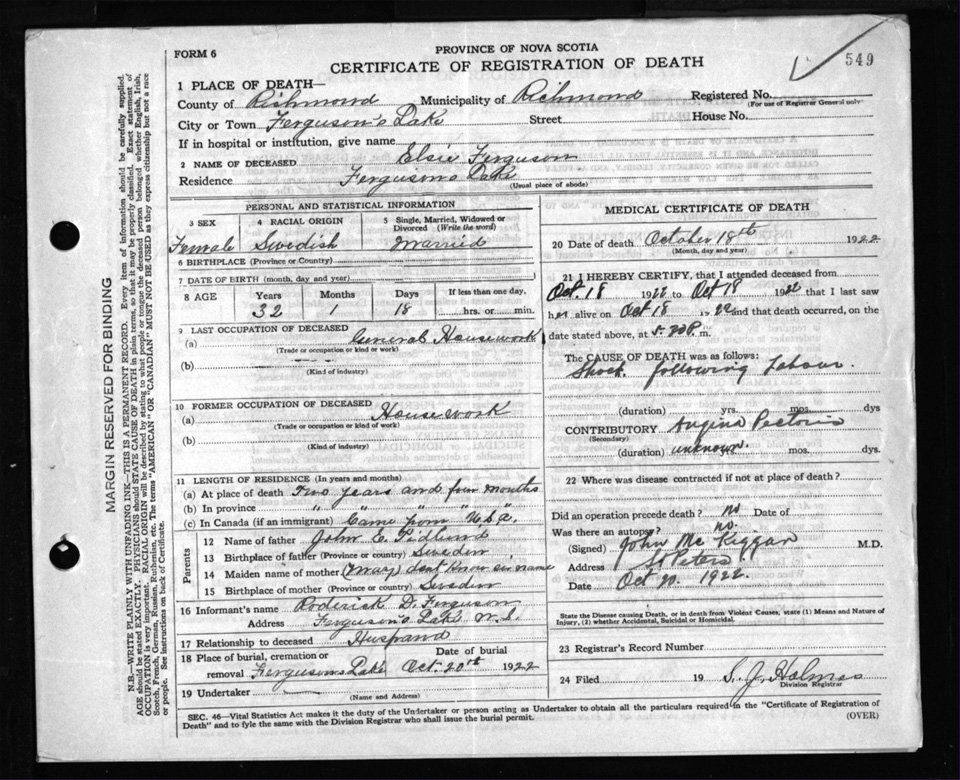 FORM 6
PROVINCE OF NOVA SCOTIA
CERTIFICATE OF REGISTRATION OF DEATH
549
1 PLACE OF DEATH—
County of Richmond Municipality of Richmond Registered No.
(For use of Registrar General only)
City or Town Ferguson's Lake Street House No.
If in hospital or institution, give name
2 NAME OF DECEASED Elsie Ferguson
Residence Fergusons Lake
(Usual place of abode)
PERSONAL AND STATISTICAL INFORMATION
3 SEX 4 RACIAL ORIGIN 5 Single, Married, Widowed or Divorced (Write the word)
Female Swedish Married
6 BIRTHPLACE (Province or Country)
7 DATE OF BIRTH (month, day and year)
8 AGE Years Months Days If less than one day,
32 1 18 hrs. or min.
9 LAST OCCUPATION OF DECEASED
(a) General Housework
(Trade or occupation or kind of work)
(b)
(Kind of industry)
10 FORMER OCCUPATION OF DECEASED
(a) Housework
(Trade or occupation or kind of work)
(b)
(Kind of industry)
11 LENGTH OF RESIDENCE (In years and months)
(a) At place of death Two years and four months
(b) In province " " " "
(c) In Canada (if an immigrant) Came from U.S.A.
Parents
12 Name of father John C.
13 Birthplace of father (Province or country) Sweden
14 Maiden name of mother (Mary) dont know sir name
15 Birthplace of mother (Province or country) Sweden
16 Informant's name Roderick D. Ferguson
Address Ferguson's Lake N.S.
17 Relationship to deceased Husband
18 Place of burial, cremation or removal Fergusons Lake Date of burial Oct. 20th 1922
19 Undertaker
(Name and Address)
MEDICAL CERTIFICATE OF DEATH
20 Date of death October 18th 1922
(Month, day and year)
21 I HEREBY CERTIFY, that I attended deceased from
Oct. 18 1922 to Oct 18 1922 that I last saw
her alive on Oct 18 1922 and that death occurred, on the
date stated above, at 5.20 P. m.
The CAUSE OF DEATH was as follows:
Shock following Labour.
(duration) yrs. mos. dys
CONTRIBUTORY Angina Pectoris
(Secondary)
(duration) unknown. mos. dys.
22 Where was disease contracted if not at place of death?
Did an operation precede death? no Date of
Was there an autopsy? no.
(Signed) John McKiggan M.D.
Address St Peters
Date Oct 20. 1922.
State the Disease causing Death, or in death from Violent Causes, state (1) Means and Nature of
Injury, (2) whether Accidental, Suicidal or Homicidal.
23 Registrar's Record Number
24 Filed 19 S. J. Holmes
Division Registrar
SEC. 46—Vital Statistics Act makes it the duty of the Undertaker or person acting as Undertaker to obtain all the particulars required in the "Certificate of Registration of
Death" and to fyle the same with the Division Registrar who shall issue the burial permit.
(OVER)
MARGIN RESERVED FOR BINDING
N.B.—WRITE PLAINLY WITH UNFADING INK—THIS IS A PERMANENT RECORD. Every item of information should be carefully supplied.
AGE should be stated EXACTLY. PHYSICIANS should STATE CAUSE OF DEATH in plain terms, so that it may be properly classified. Exact statement of
OCCUPATION is very important. RACIAL ORIGIN will be described by stating to what people or tongue the deceased person belonged whether English, Irish,
Scotch, French, German, Russian, Ruthenian, etc. The terms "AMERICAN" OR "CANADIAN" MUST NOT BE USED as they express citizenship but not a race
or people. See instructions on back of Certificate.